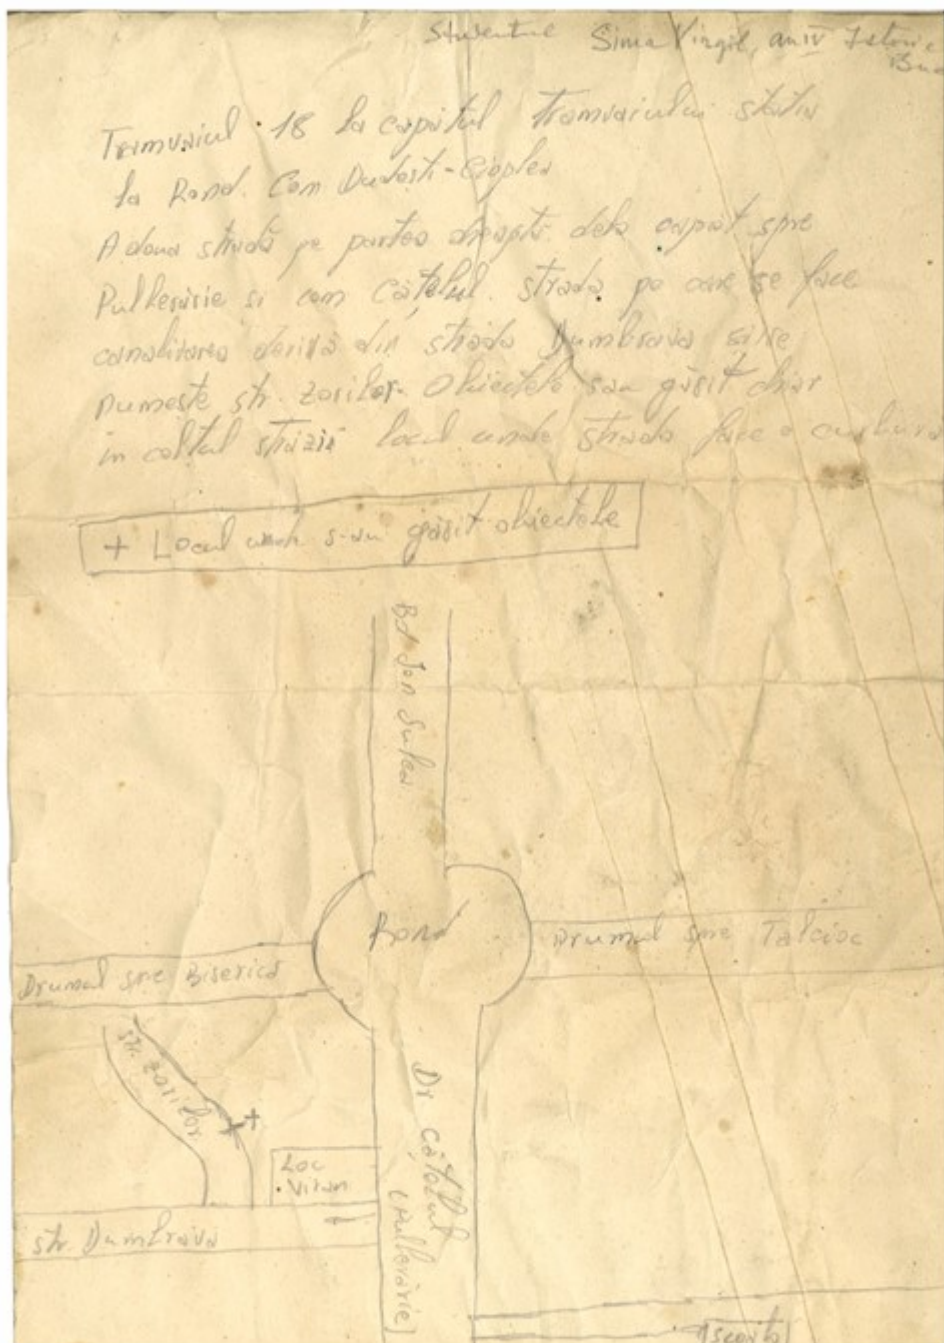 Studentul Sima Virgil, an IV Istorie
Buc
Tramvaiul 18 la capatul tramvaiului statia
la Rond. Com Dudesti-Cioplea
A doua stradă pe partea dreaptă dela capat spre
Pulherărie si com Cățelul. strada pe care se face
canalizarea derivă din strada Dumbrava si se
numeste str. Zorilor. Obiectele sau găsit chiar
in coltul străzii locul unde strada face o curbura
+ Locul unde s-au găsit obiectele
Bd Ion Sulea
Rond
Drumul spre Talcioc
Drumul spre Biserica
str. Zorilor
+ +
Dr. Cățelul
(Pulherărie)
Loc
Viran
str. Dumbrava